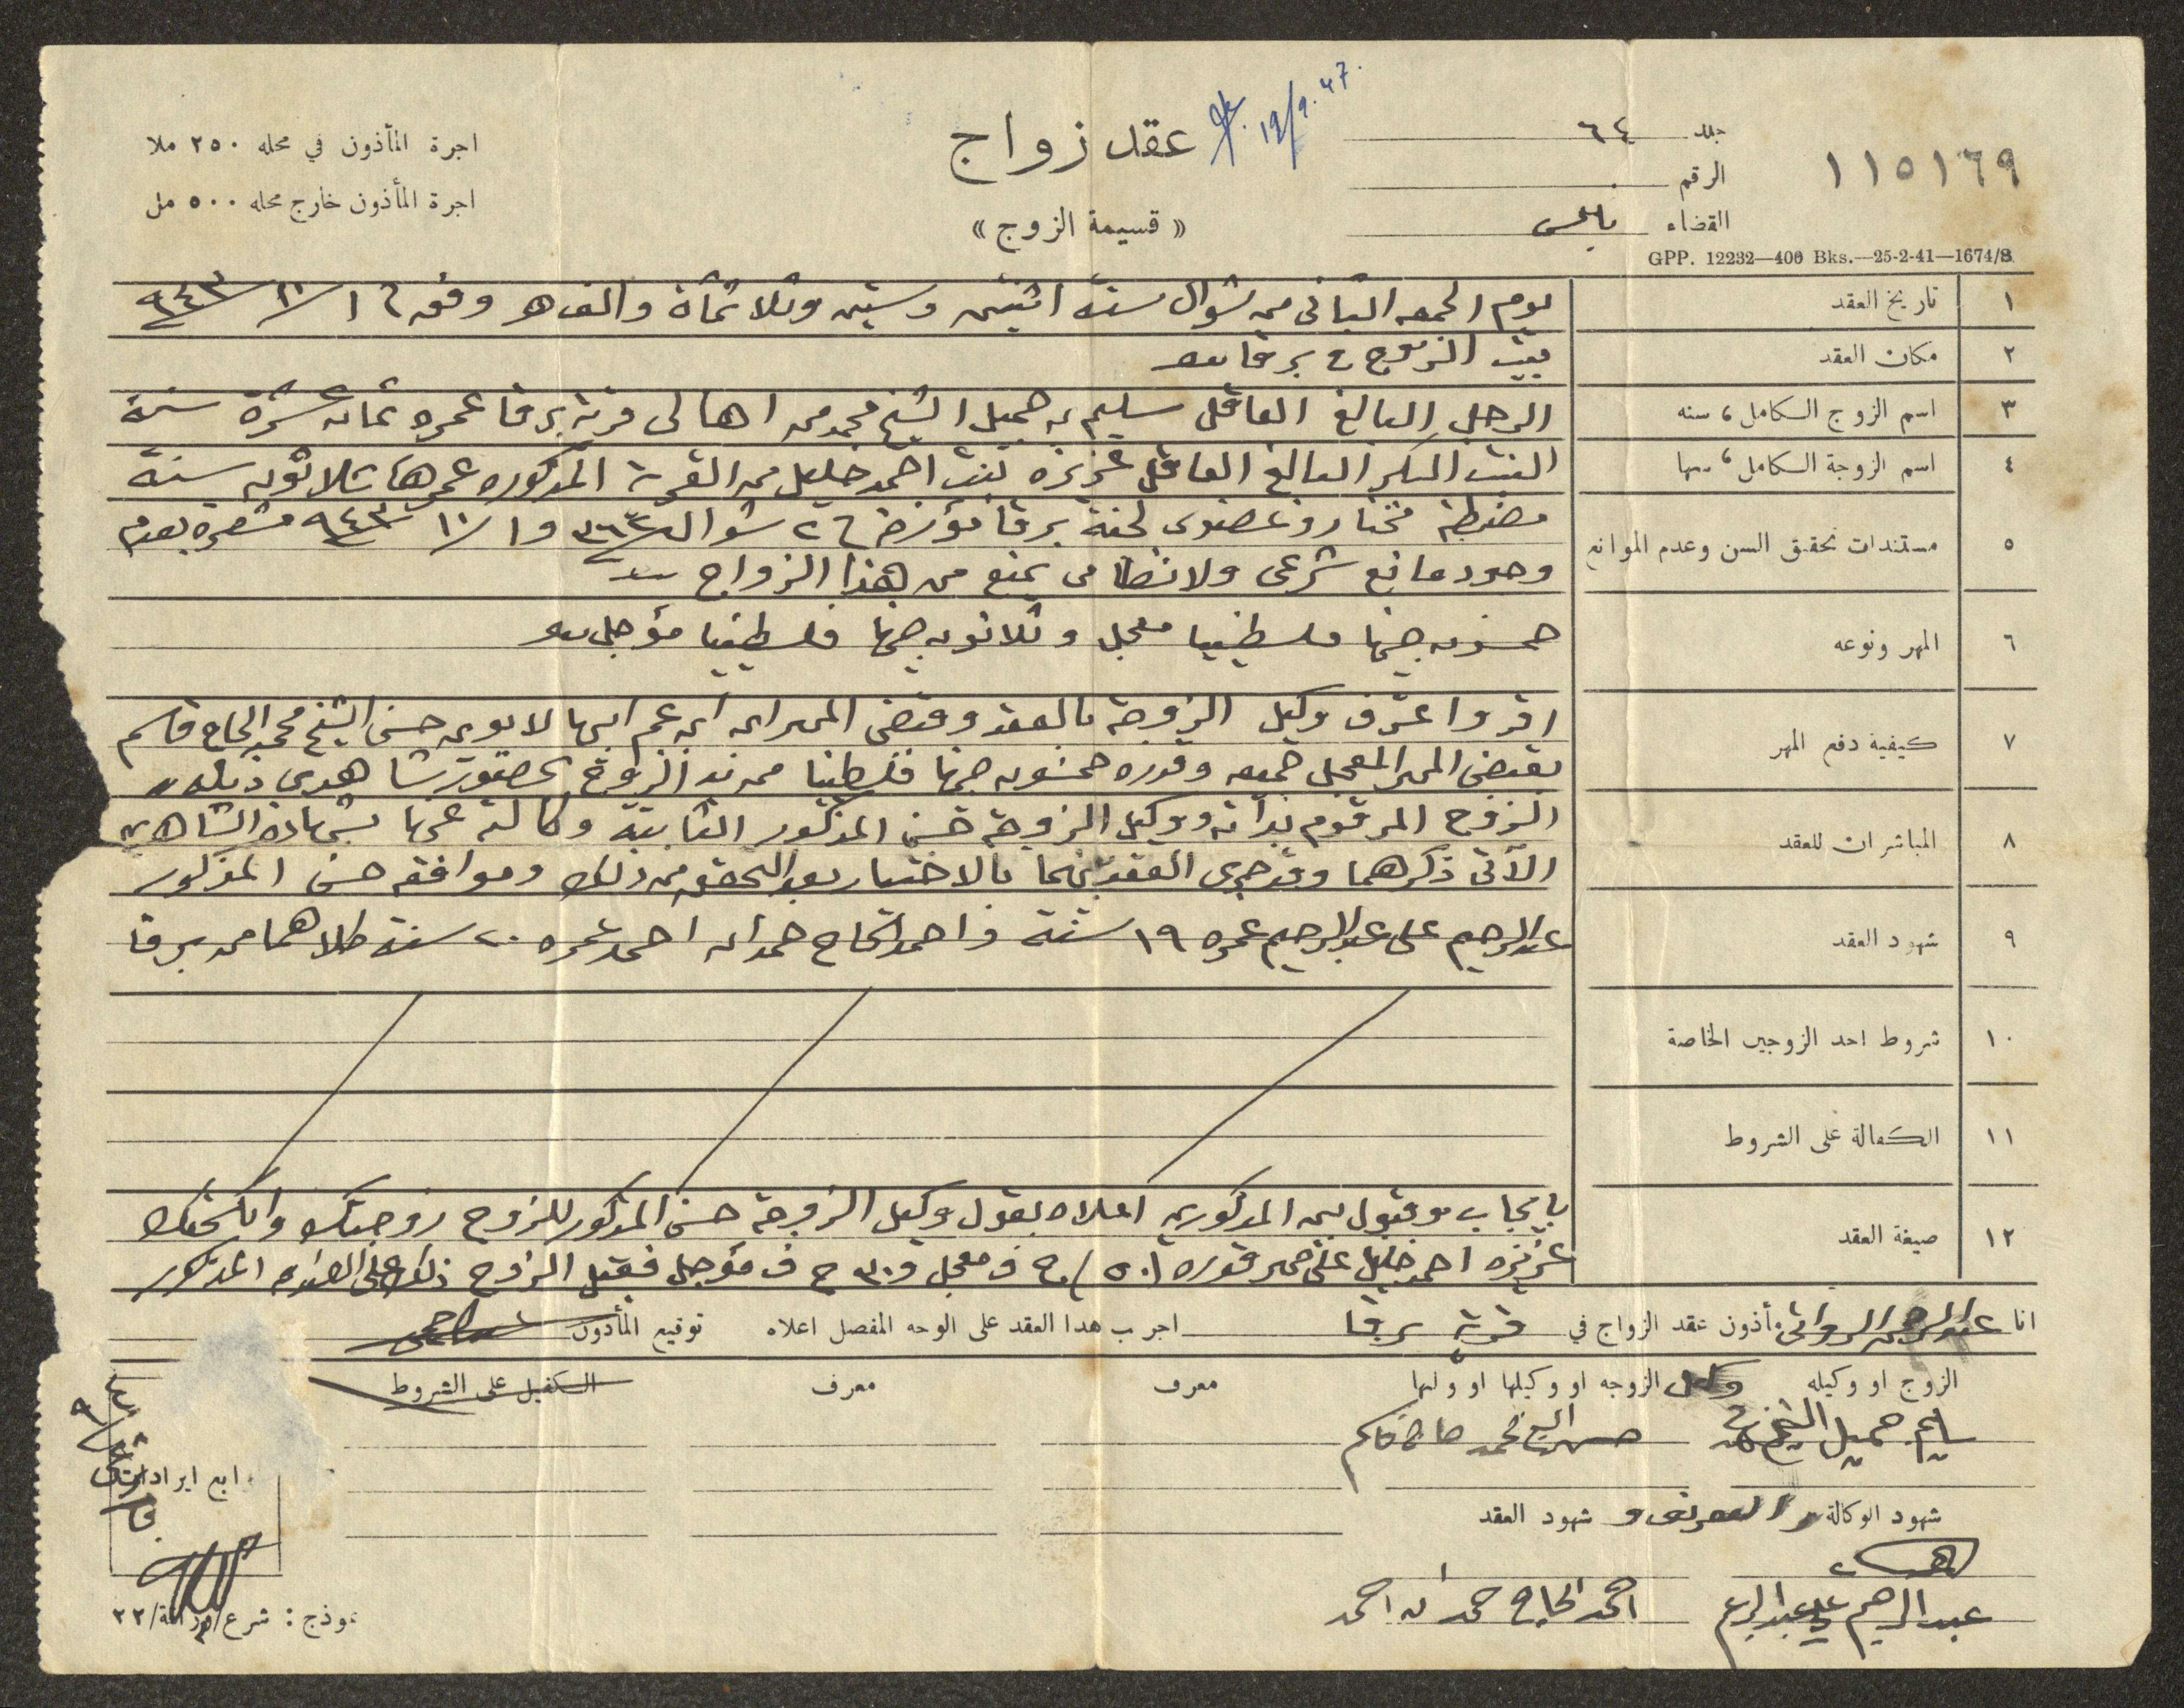 جلد ٦٤
١١٥١٦٩
19/9.47.
عقد زواج
اجرة المأذون في محله ٢٥٠ ملا
الرقم
القضاء نابلس
« قسيمة الزوج »
اجرة المأذون خارج محله ٥٠٠ مل
GPP. 12232—400 Bks.—25-2-41—1674/8
١ تاريخ العقد يوم الجمعه الثاني من شوال سنة اثنين وستين وثلاثمأة والف هـ وفق ١/١٠/٩٤٣
٢ مكان العقد بيت الزوج في برقا
٣ اسم الزوج الكامل، سنه الرجل البالغ العاقل سليم بن جميل الشيخ محمد من اهالي قرية برقا عمره ثمانية عشرة سنة
٤ اسم الزوجة الكامل، سنها البنت البكر البالغ العاقل عزيزه بنت احمد خليل من القرية المذكوره عمرها ثلاثون سنة
٥ مستندات تحقيق السن وعدم الموانع مضبطة مختار وعضوي لجنة برقا مؤرخة ٢ شوال ٣٦٢ و ١/١٠/٩٤٣ مشعرة بعدم
وجود مانع شرعي ولا نظامي يمنع من هذا الزواج
٦ المهر ونوعه خمسون جنيها فلسطينيا معجل وثلاثون جنيها فلسطينيا مؤجل
٧ كيفية دفع المهر اقر واعترف وكيل الزوجة بالعقد وقبض المهر ابن ابن عم ابيها لابوين حسن الشيخ محمد الحاج قاسم
بقبض المهر المعجل جميعه وقدره خمسون جنيها فلسطينيا من يد الزوج بحضور شاهدي ذيله
٨ المباشران للعقد الزوج المرقوم بذاته ووكيل الزوجة حسن المذكور الثابتة وكالته عنها بشهادة الشاهدين
الآتي ذكرهما وقد جرى العقد بينهما بالاختيار بعد التحقق من ذلك وموافقة حسن المذكور
٩ شهود العقد عبد الرحيم علي عبد الرحيم عمره ١٩ سنة واحمد الحاج حمدان احمد عمره ٢٠ سنة كلاهما من برقا
١٠ شروط احد الزوجين الخاصة
١١ الكفالة على الشروط
١٢ صيغة العقد بايجاب وقبول بين المذكورين اعلاه بقول وكيل الزوجة حسن المذكور للزوج زوجتك وانكحتك
عزيزه احمد خليل على مهر قدره (٥٠) ج ف معجل و ٣٠ ج ف مؤجل فقبل الزوج ذلك على الصداق المذكور
انا مأذون عقد الزواج في قرية برقا اجريت هذا العقد على الوجه المفصل اعلاه توقيع المأذون
الزوج او وكيله وكيل الزوجه او وكيلها او وليها معرف معرف الكفيل على الشروط
سليم جميل الشيخ محمد حسن الشيخ محمد حاج قاسم
شهود الوكالة والتعريف و شهود العقد
طوابع ايرادات
عبد الرحيم علي عبد الرحيم احمد الحاج حمدان احمد
نموذج : شرع/ /٢٢